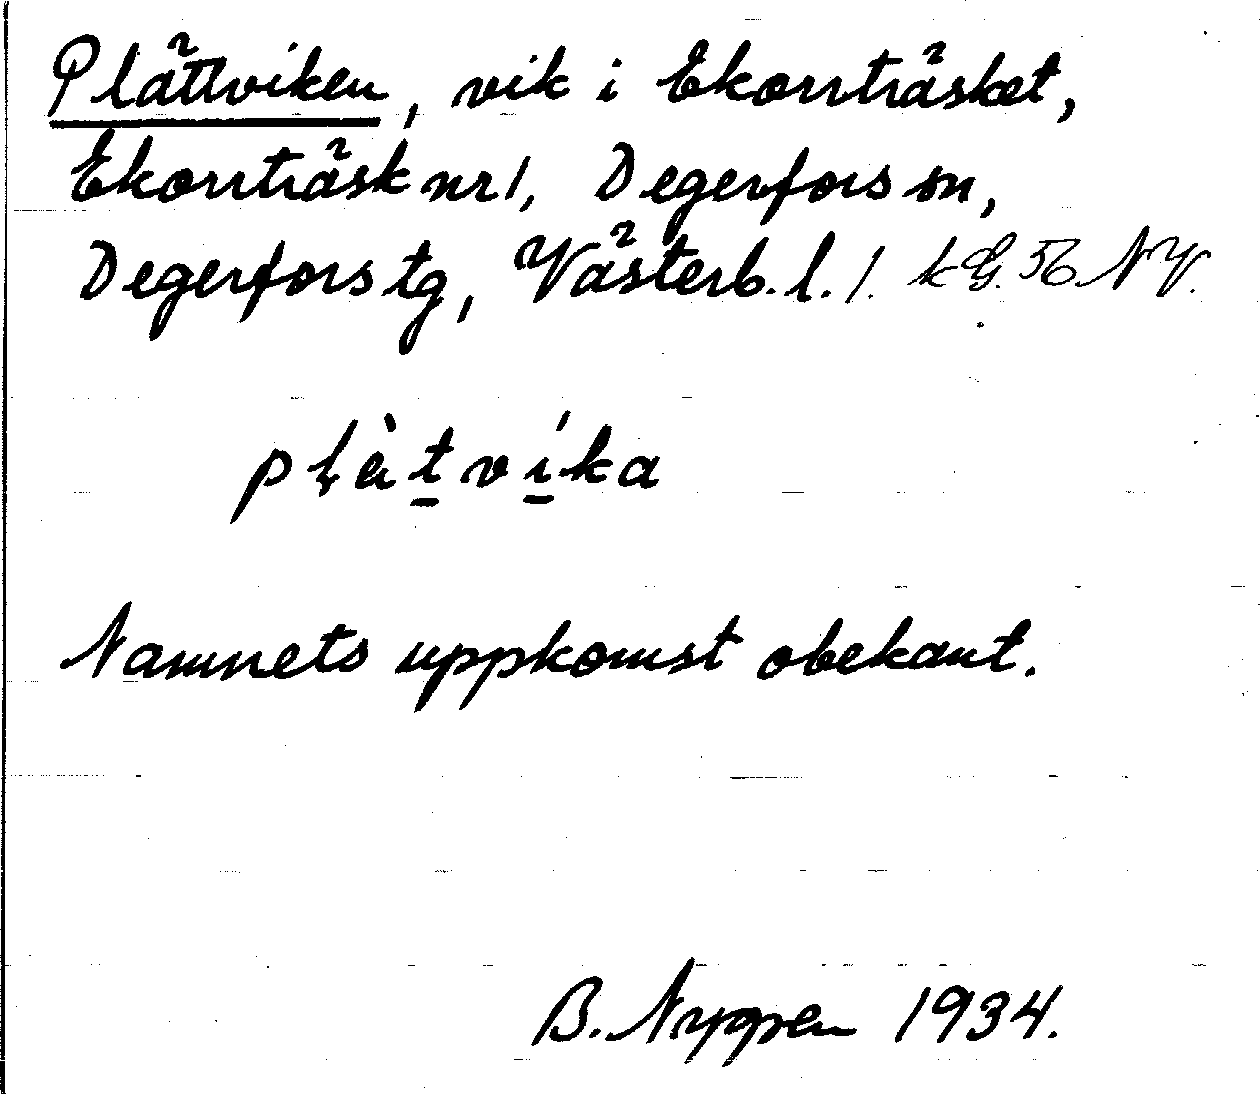 Plättviken, vik i Ekorrträsket,
Ekorrträsk nr 1, Degerfors sn,
Degerfors tg, Västerb. l. 1. kG. 56 NV.
plàtvíka
Namnets uppkomst obekant.
B. Nygren 1934.